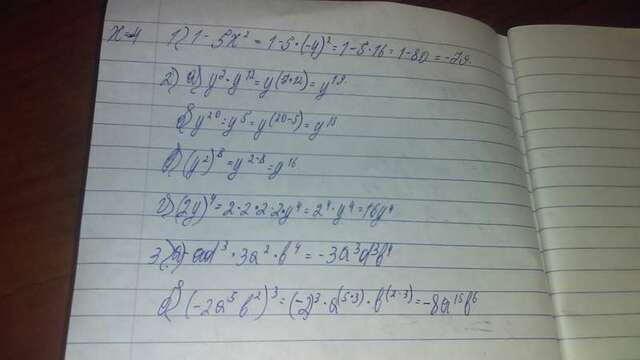 x=-4 1) 1-5x² = 1-5·(-4)² = 1-5·16 = 1-80 = -79.
2) а) y⁷·y¹² = y(⁷⁺¹²) = y¹⁹
б) y²⁰:y⁵ = y(²⁰⁻⁵) = y¹⁵
в) (y²)⁸ = y²·⁸ = y¹⁶
г) (2y)⁴ = 2·2·2·2·y⁴ = 2⁴·y⁴ = 16y⁴
б) (-2a⁵b²)³ = (-2)³·a(⁵·³)·b(²·³) = -8a¹⁵b⁶